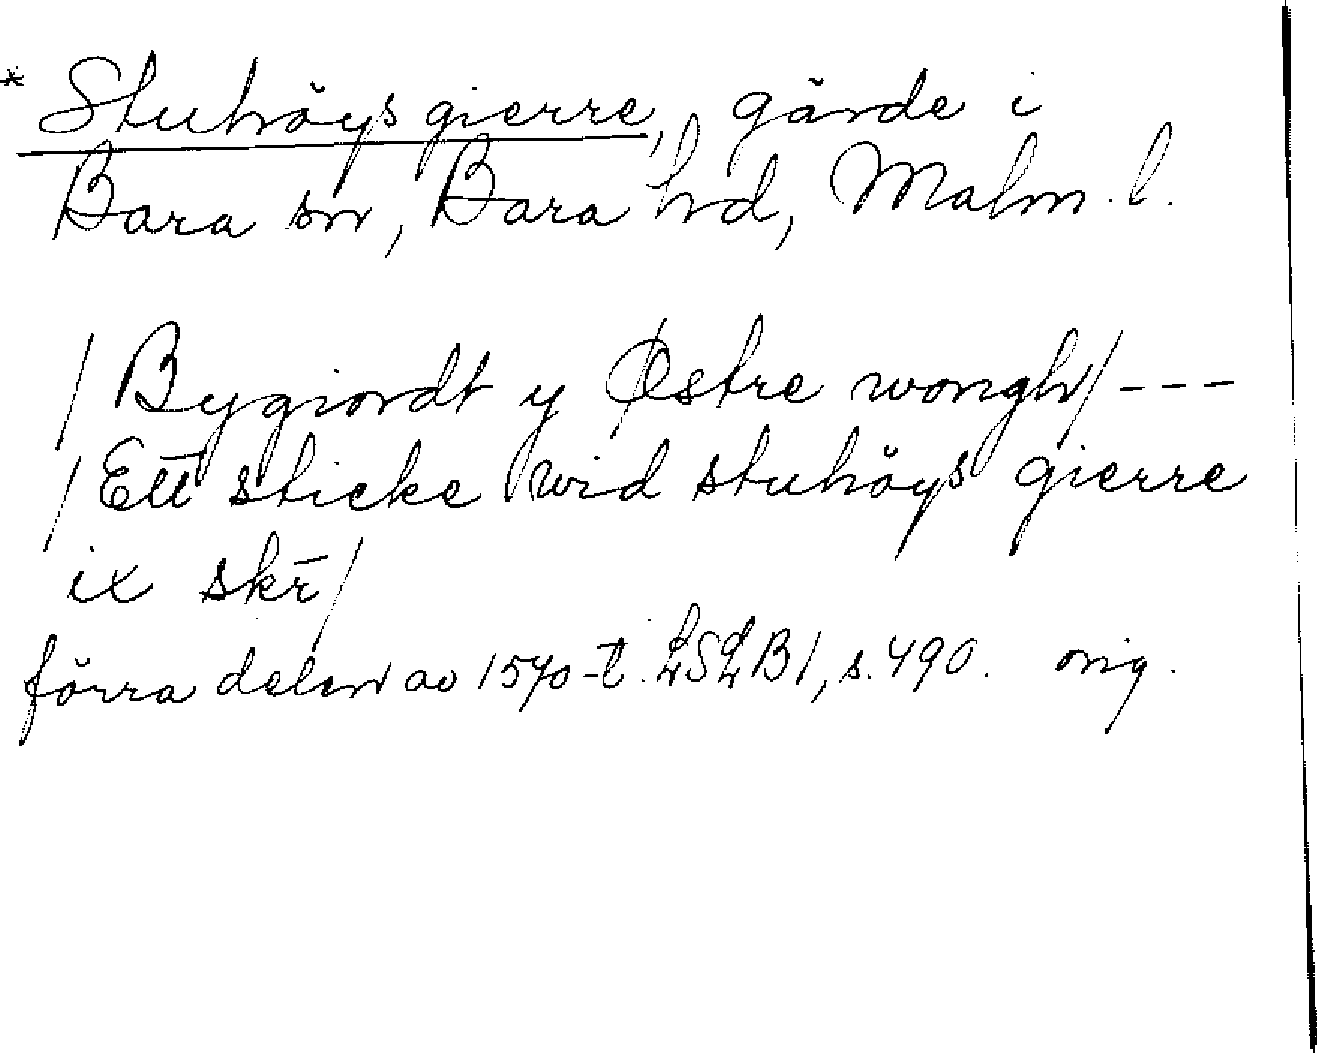 * Stuhöys gierre, gärde i
Bara sn, Bara hd, Malm. l.
/Bygiordt y Østre wongh/ ---
/Ett sticke wid stuhöys gierre
ix skr̄/
förra delen av 1570-t. LSLB1, s. 490. orig.